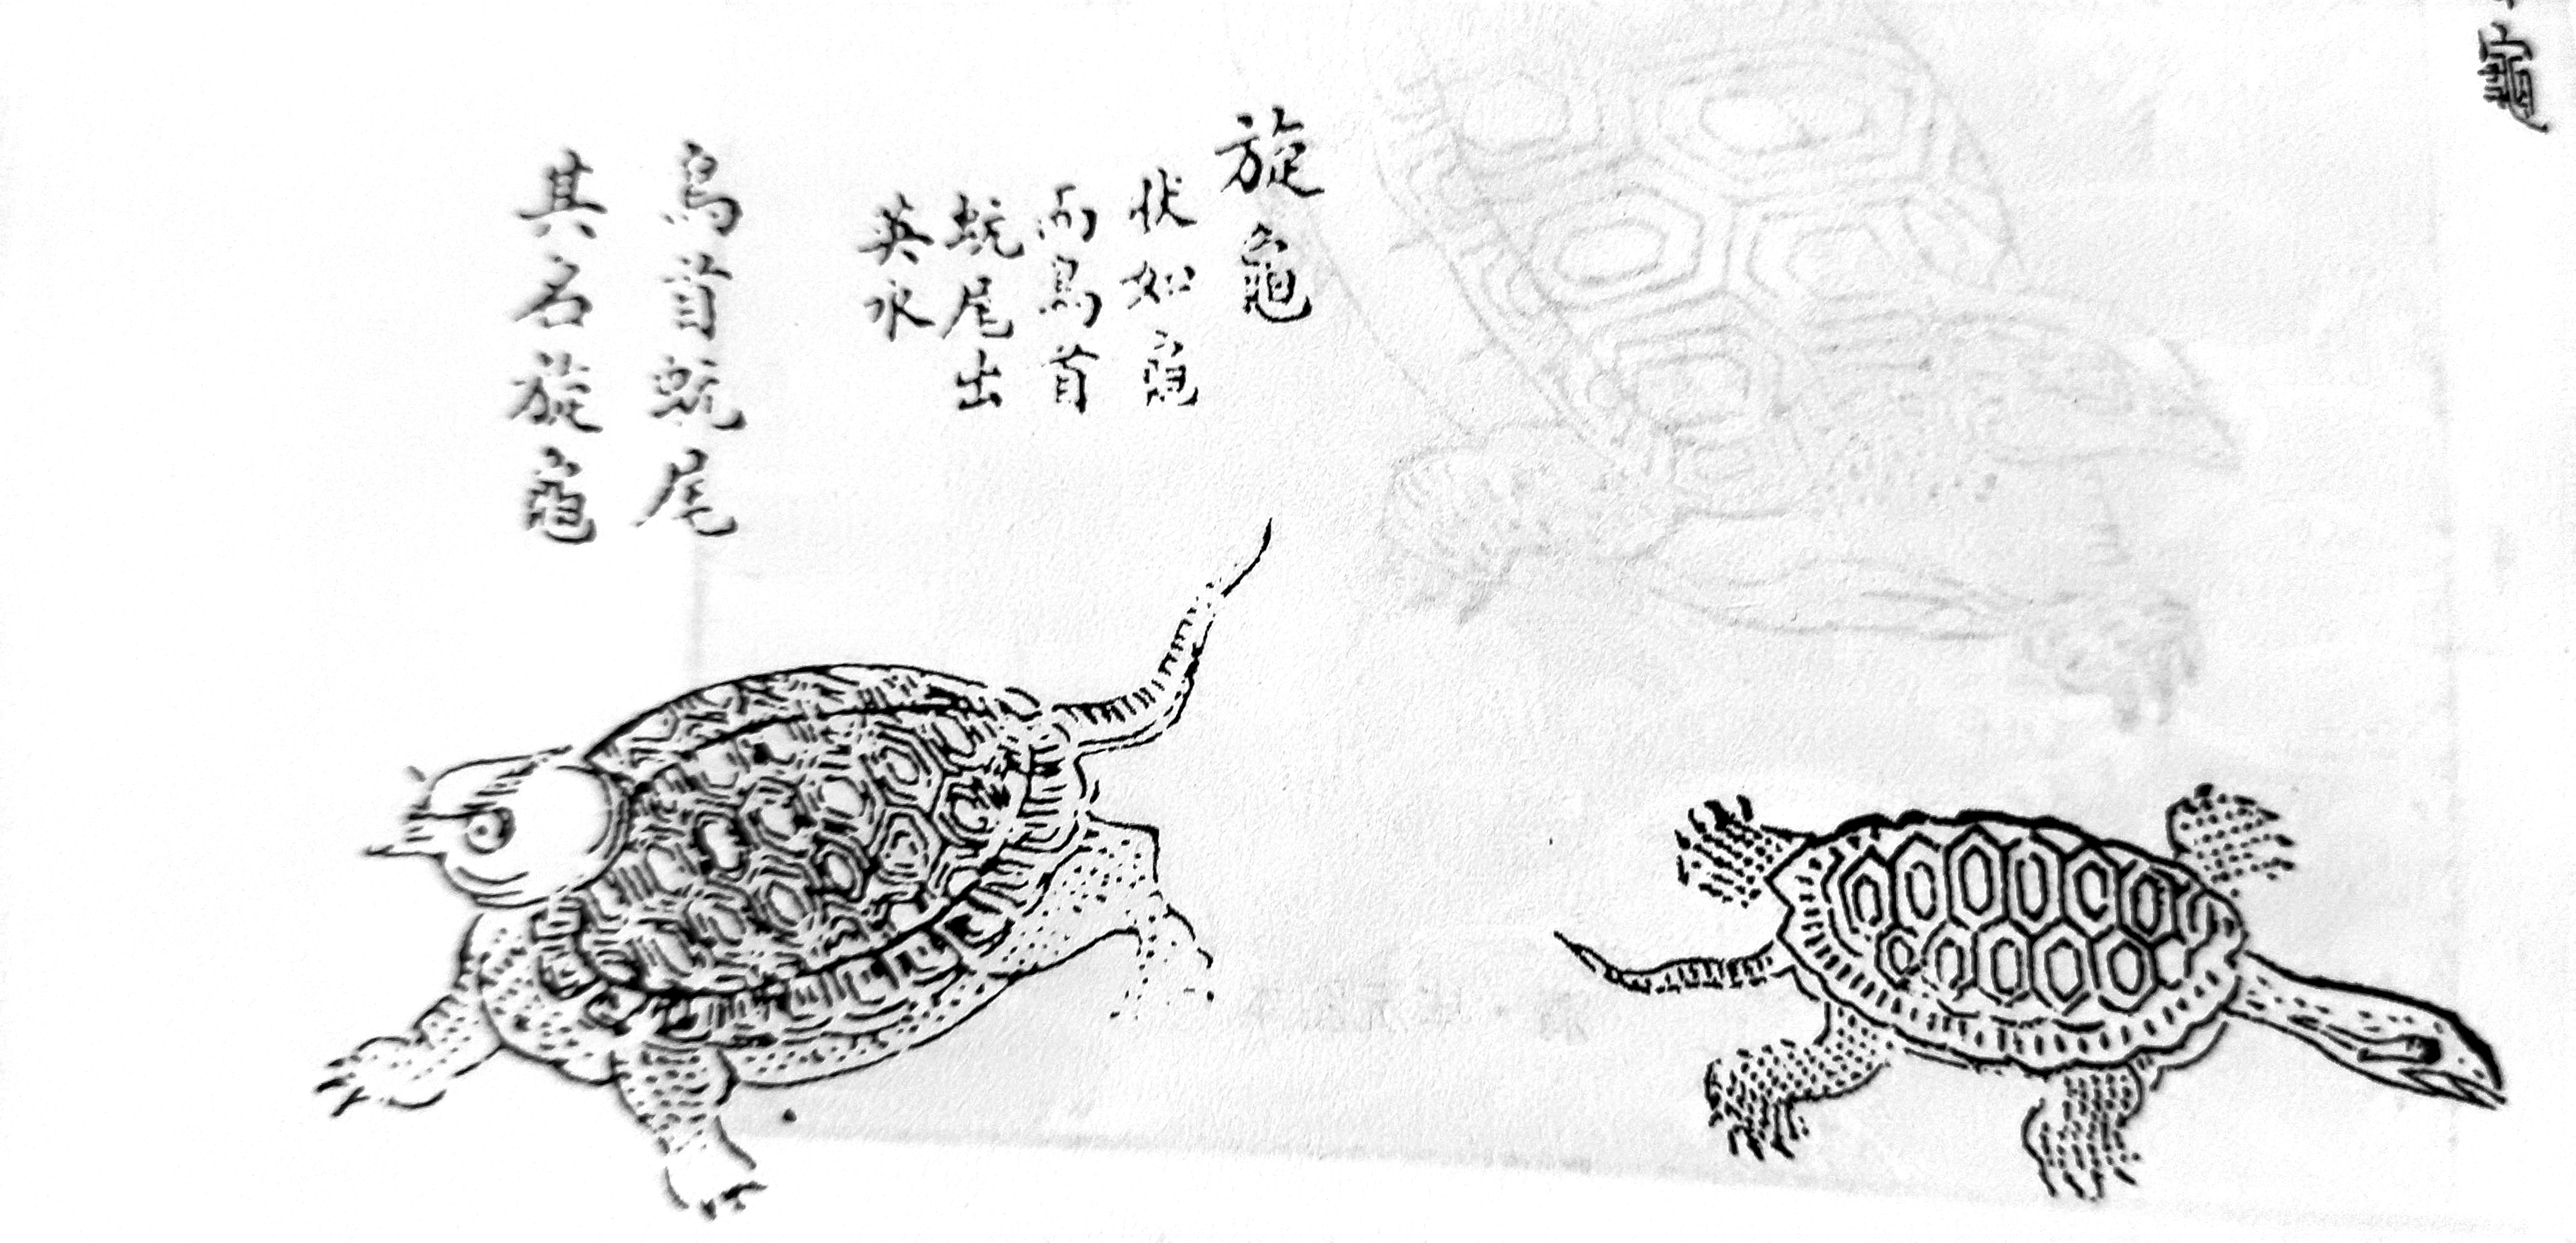 龜
旋龜
状如龜
而鳥首
蚖尾出
英水
鳥首蚖尾
其名旋龜